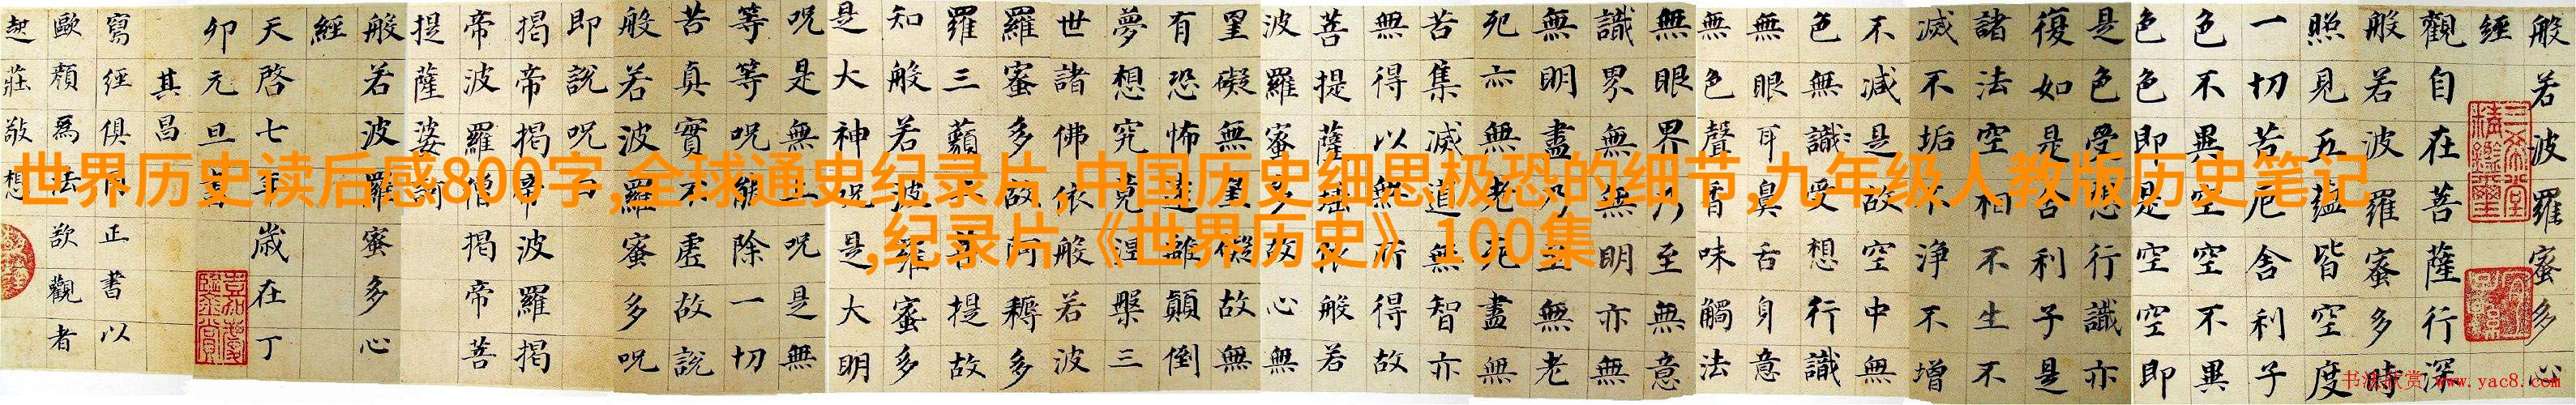 般若波羅蜜多心
經
觀自在菩薩行深
般若波羅蜜多時
照見五蘊皆空度
一切苦厄舍利子
色不異空空不異
色色即是空空即
是色受想行識亦
復如是舍利子是
諸法空相不生不
滅不垢不淨不增
不減是故空中無
色無識受想行識
無眼耳鼻舌身意
無色聲香味觸法
無眼界乃至無意
識界無無明亦無
無明盡乃至無老
死亦無老死盡無
苦集滅道無智亦
無得以無所得故
菩提薩埵依般若
波羅蜜多故心無
罣礙無罣礙故無
有恐怖遠離顛倒
夢想究竟涅槃三
世諸佛依般若波
羅蜜多故阿耨多
羅三藐三菩提故
知般若波羅蜜多
是大神呪是大明
呪是無上呪是無
等等呪能除一切
苦真實不虛故說
般若波羅蜜多呪
即說呪曰
揭帝揭帝波羅揭
帝波羅僧揭帝菩
提薩婆訶
般若波羅蜜多心
經
天啓七年歲在丁
卯元旦書
其昌
寫經俱用正書以
歐顏爲法欲觀者
起莊敬想
世界历史读后感800字,全球通史纪录片,中国历史细思极恐的细节,九年级人教版历史笔记
,纪录片《世界历史》100集
三希堂精鑑璽
书法欣赏 www.yac8.com